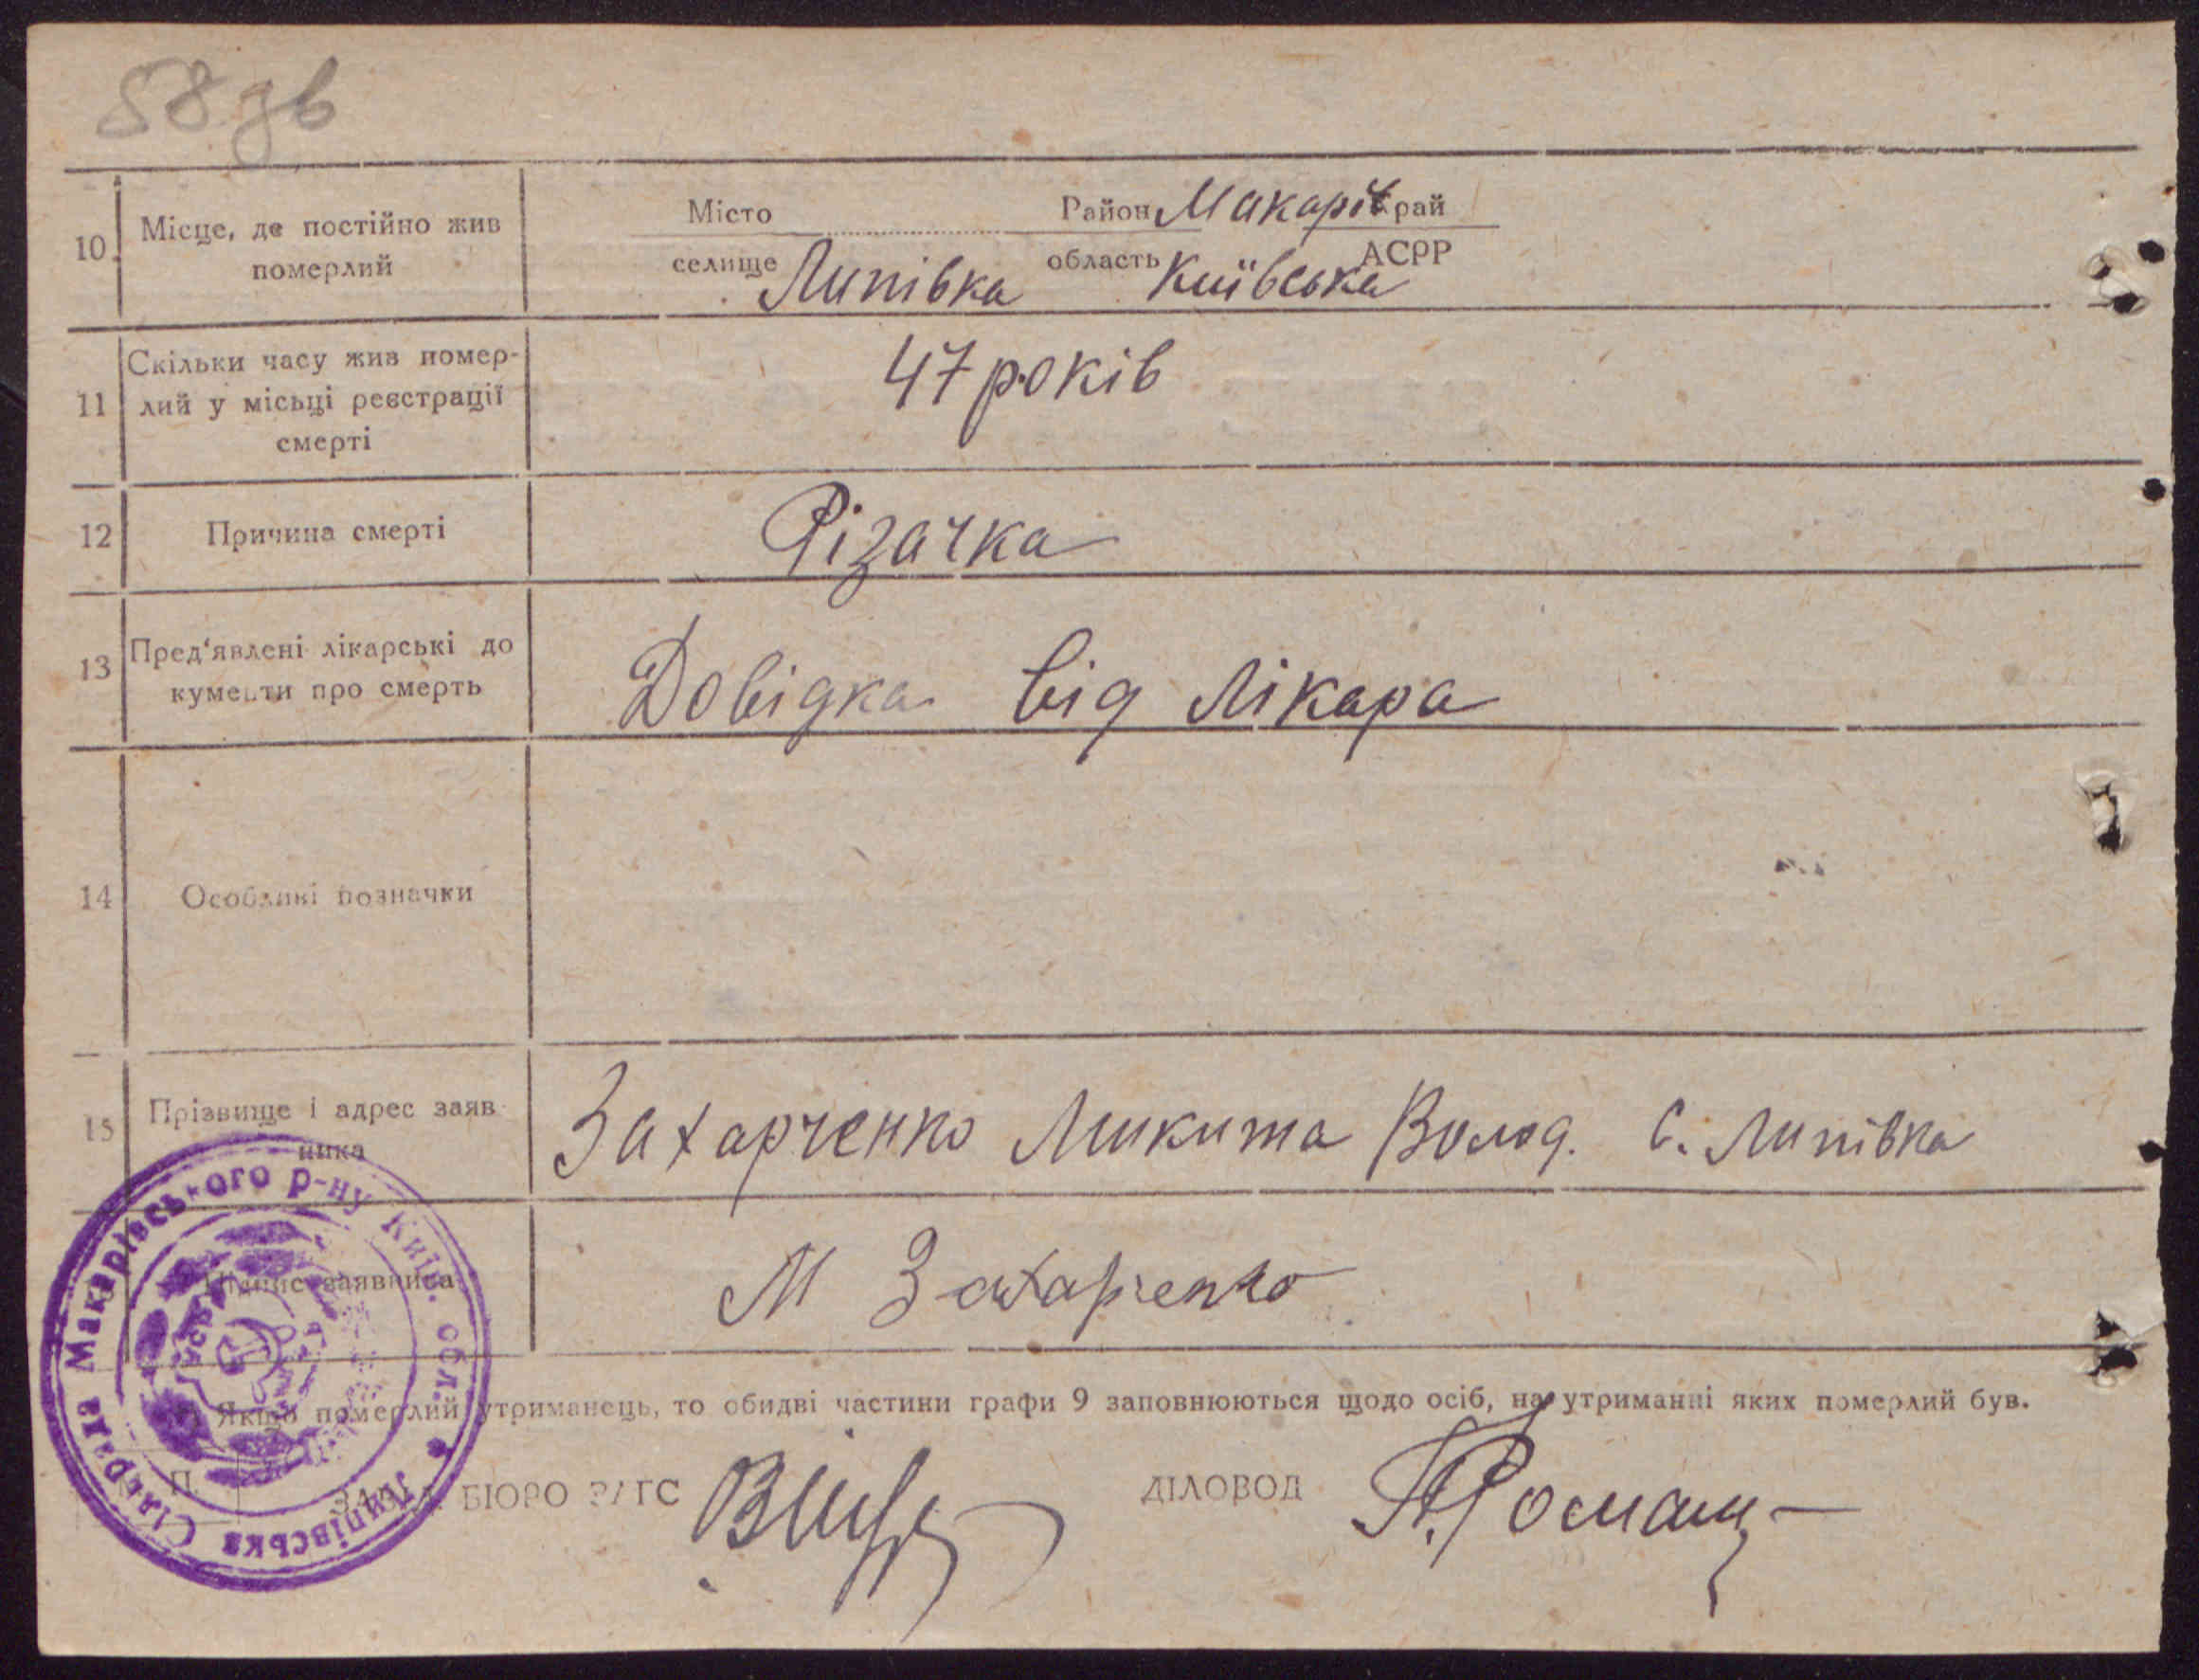 58 зв
10. Місце, де постійно жив померлий
Місто Район Макарів Край
селище Липівка область Київська АСРР
11 Скільки часу жив помер-
лий у місьці реєстрації
смерті
47 років
12 Причина смерті Різачка
13 Пред'явлені лікарські до
кументи про смерть
Довідка від лікара
14 Особливі позначки
15 Прізвище і адрес заяв
ника
Захарченко Микита Волод. с. Липівка
Підпис заявника М Захарченко
Якщо померлий утриманець, то обидві частини графи 9 заповнюються щодо осіб, на утриманні яких померлий був.
П.
ЗАВ. БЮРО ЗАГС ДІЛОВОД
Липівська Сільрада Макарівського р-ну Київ. обл.
УСРР